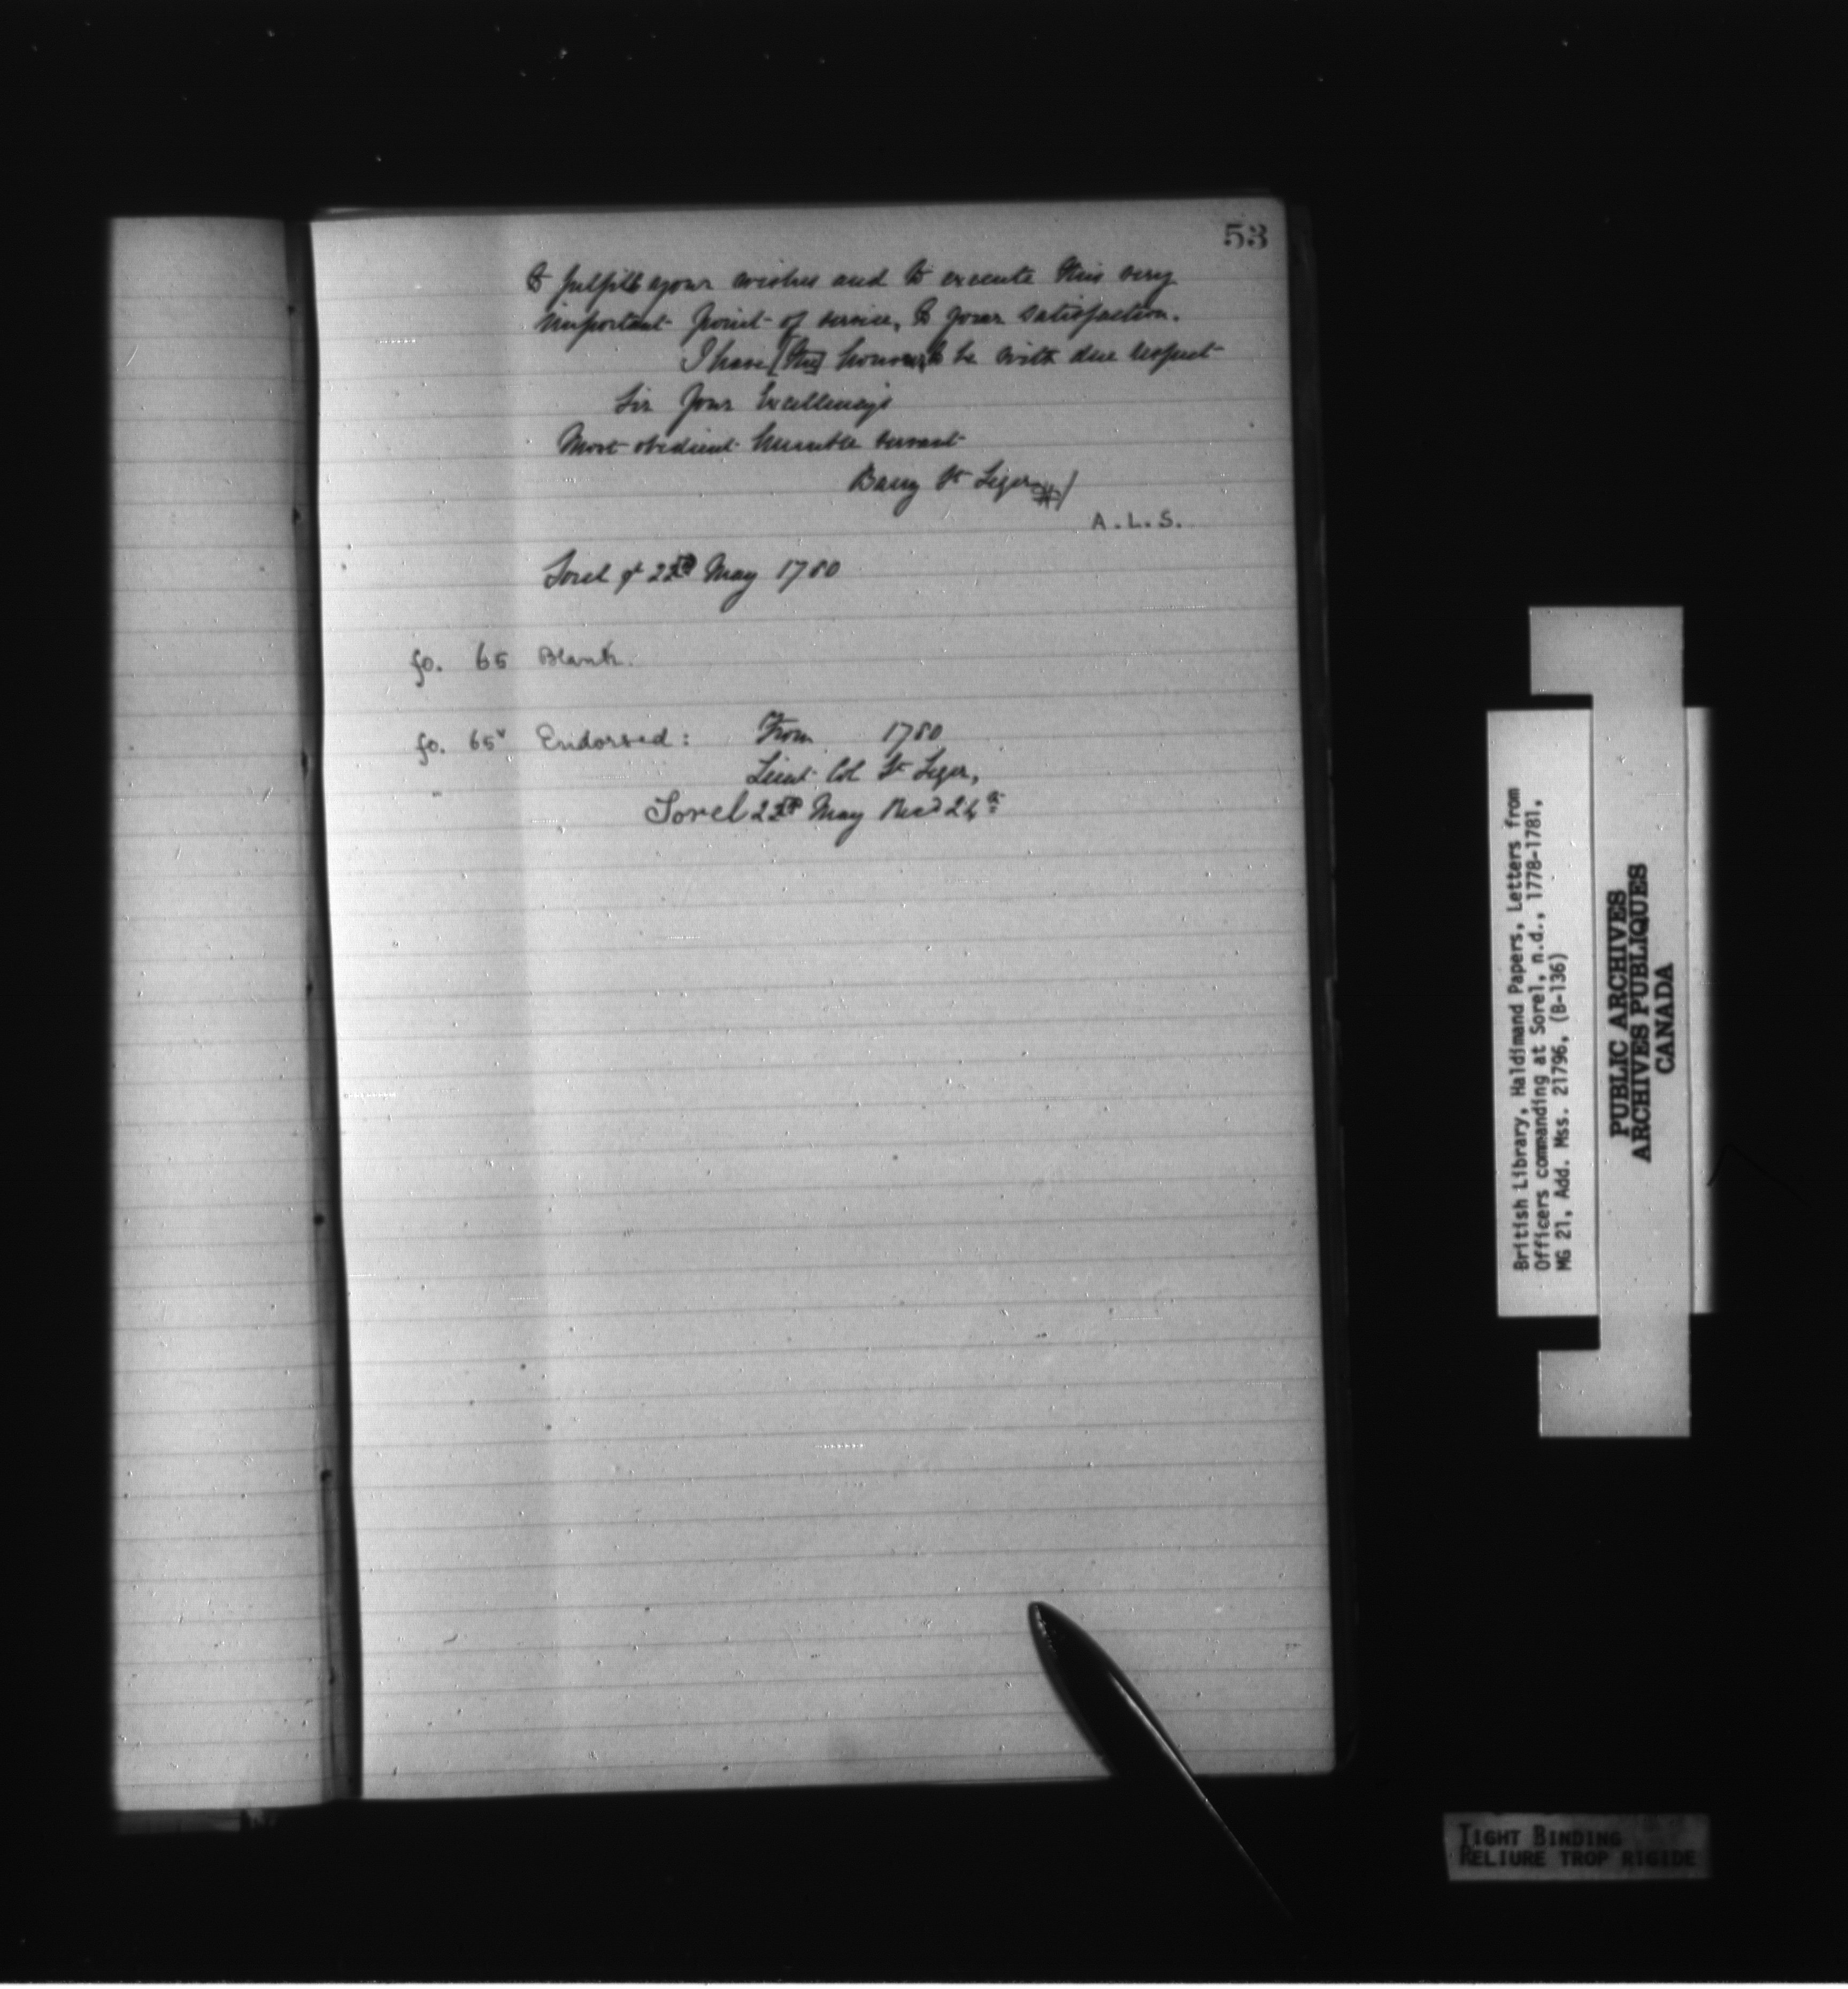 53
to fulfill your wishes and to execute this very
important point of service, to your satisfaction.
I have [the] honour, to be with due respect
Sir Your Excellency's
Most obedient humble servant
Barry St Leger
A.L.S.
Sorel yt 22nd May 1780
fo. 65 Blank.
fo. 65v Endorsed: From 1780
Lieut Col St Leger,
Sorel 22nd May Recd 24th
British Library, Haldimand Papers, Letters from
Officers commanding at Sorel, n.d., 1778-1781,
MG 21, Add. Mss. 21796, (B-136)
PUBLIC ARCHIVES
ARCHIVES PUBLIQUES
CANADA
TIGHT BINDING
RELIURE TROP RIGIDE